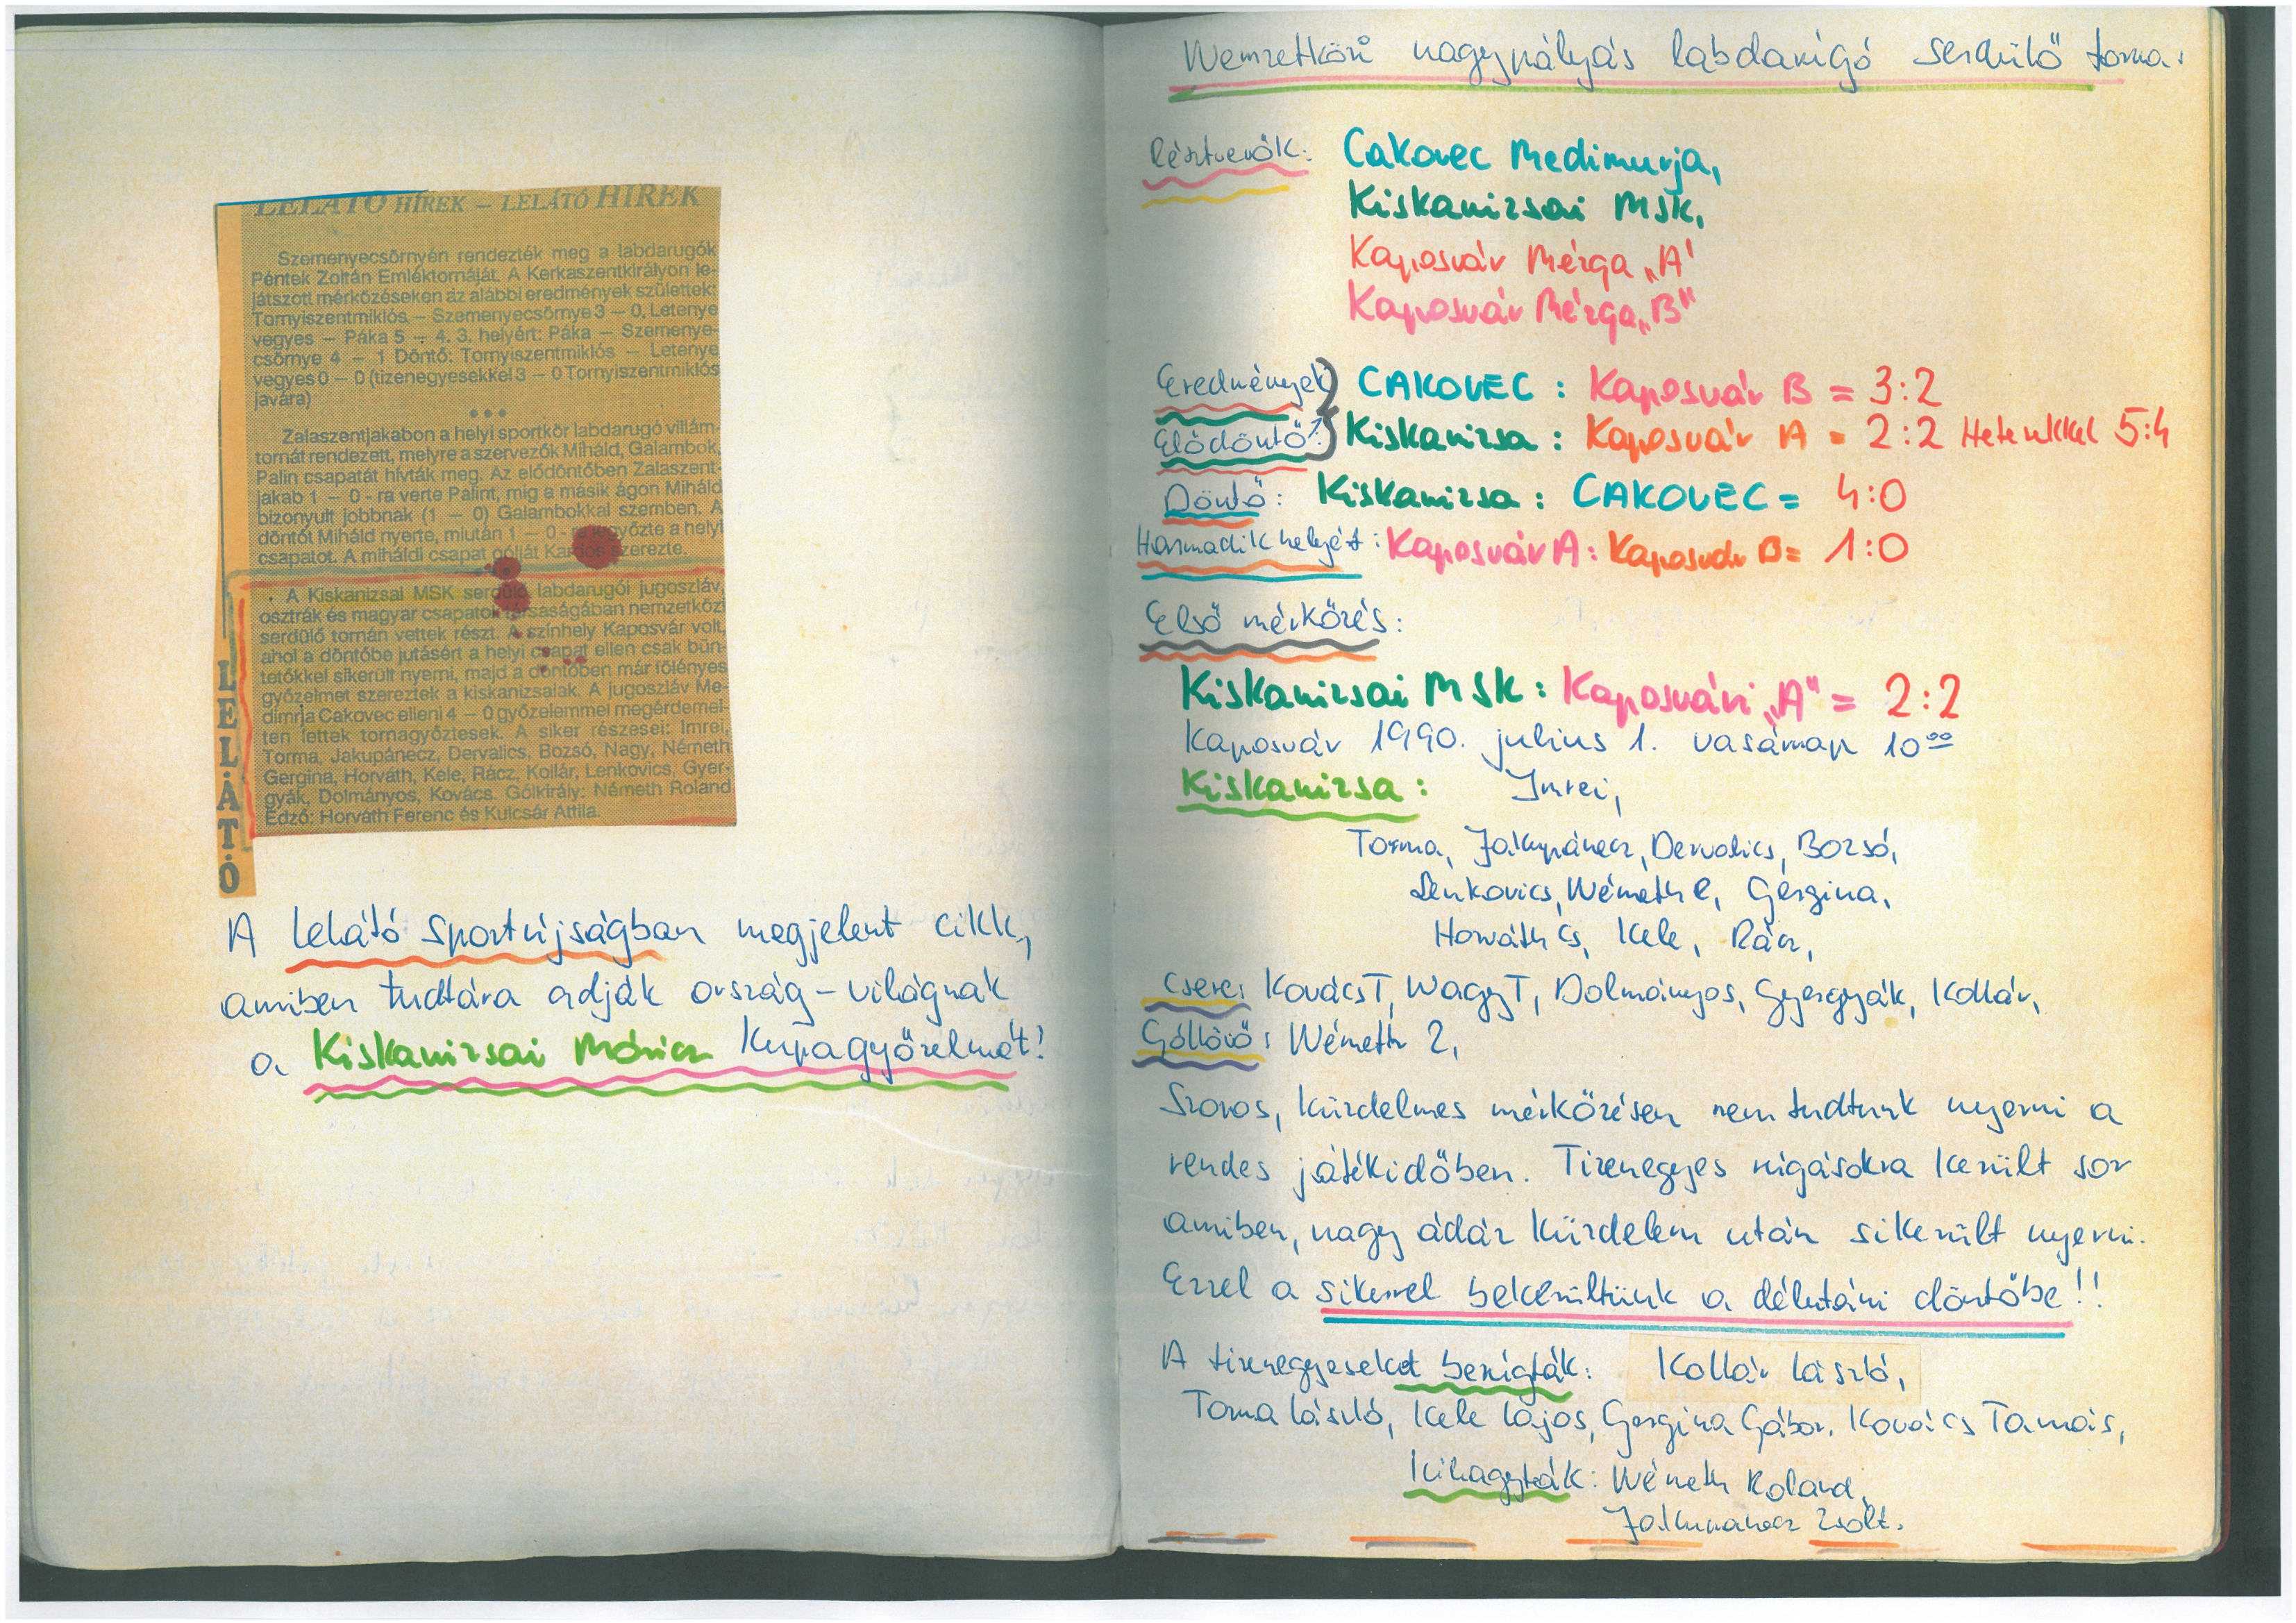 LELÁTÓ HÍREK – LELÁTÓ HÍREK
Szemenyecsörnyén rendezték meg a labdarugók
Péntek Zoltán Emléktornáját. A Kerkaszentkirályon le-
játszott mérkőzéseken az alábbi eredmények születtek:
Tornyiszentmiklós – Szemenyecsörnye 3 – 0, Letenye
vegyes – Páka 5 – 4. 3. helyért: Páka – Szemenye-
csörnye 4 – 1 Döntő: Tornyiszentmiklós – Letenye
vegyes 0 – 0 (tizenegyesekkel 3 – 0 Tornyiszentmiklós
javára)
•••
Zalaszentjakabon a helyi sportkör labdarugó villám-
tornát rendezett, melyre a szervezők Miháld, Galambok,
Palin csapatát hívták meg. Az elődöntőben Zalaszent-
jakab 1 – 0 - ra verte Palint, míg a másik ágon Miháld
bizonyult jobbnak (1 – 0) Galambokkal szemben. A
döntőt Miháld nyerte, miután 1 – 0 - győzte a helyi
csapatot. A miháldi csapat gólját Kardos szerezte.
• A Kiskanizsai MSK serdülő labdarugói jugoszláv,
osztrák és magyar csapatok társaságában nemzetközi
serdülő tornán vettek részt. A színhely Kaposvár volt,
ahol a döntőbe jutásért a helyi csapat ellen csak bün-
tetőkkel sikerült nyerni, majd a döntőben már fölényes
győzelmet szereztek a kiskanizsaiak. A jugoszláv Me-
dimrja Cakovec elleni 4 – 0 győzelemmel megérdemel-
ten lettek tornagyőztesek. A siker részesei: Imrei,
Torma, Jakupánecz, Dervalics, Bozsó, Nagy, Németh
Gergina, Horváth, Kele, Rácz, Kollár, Lenkovics, Gyer-
gyák, Dolmányos, Kovács. Gólkirály: Németh Roland
Edző: Horváth Ferenc és Kulcsár Attila.
LELÁTÓ
A Lelátó Sportújságban megjelent cikk,
amiben tudtára adják ország-világnak
a Kiskanizsai Móricz Kupagyőzelmét!
Nemzetközi nagypályás labdarúgó serdülő torna:
Résztvevők: Cakovec Medimurja,
Kiskanizsai MSK,
Kaposvár Mérga „A"
Kaposvár Mérga „B"
Eredmények CAKOVEC : Kaposvár B = 3:2
Elődöntő: Kiskanizsa : Kaposvár A = 2:2 Hetesekkel 5:4
Döntő: Kiskanizsa : CAKOVEC = 4:0
Harmadik helyért: Kaposvár A : Kaposvár B = 1:0
Első mérkőzés:
Kiskanizsai MSK : Kaposvári „A" = 2:2
Kaposvár 1990. julius 1. vasárnap 10⁰⁰
Kiskanizsa: Imrei,
Torma, Jakupánecz, Dervalics, Bozsó,
Lenkovics, Németh R, Gergina,
Horváth Cs, Kele, Rácz,
Csere: Kovács T, Nagy T, Dolmányos, Gyergyák, Kollár,
Góllövő: Németh 2,
Szoros, küzdelmes mérkőzésen nem tudtunk nyerni a
rendes játékidőben. Tizenegyes rúgásokra került sor
amiben, nagy ádáz küzdelem után sikerült nyerni.
Ezzel a sikerrel bekerültünk a délutáni döntőbe!!
A tizenegyeseket berúgták: Kollár László,
Torma László, Kele Lajos, Gergina Gábor, Kovács Tamás,
Kihagyták: Németh Roland,
Jakupanecz Zsolt.